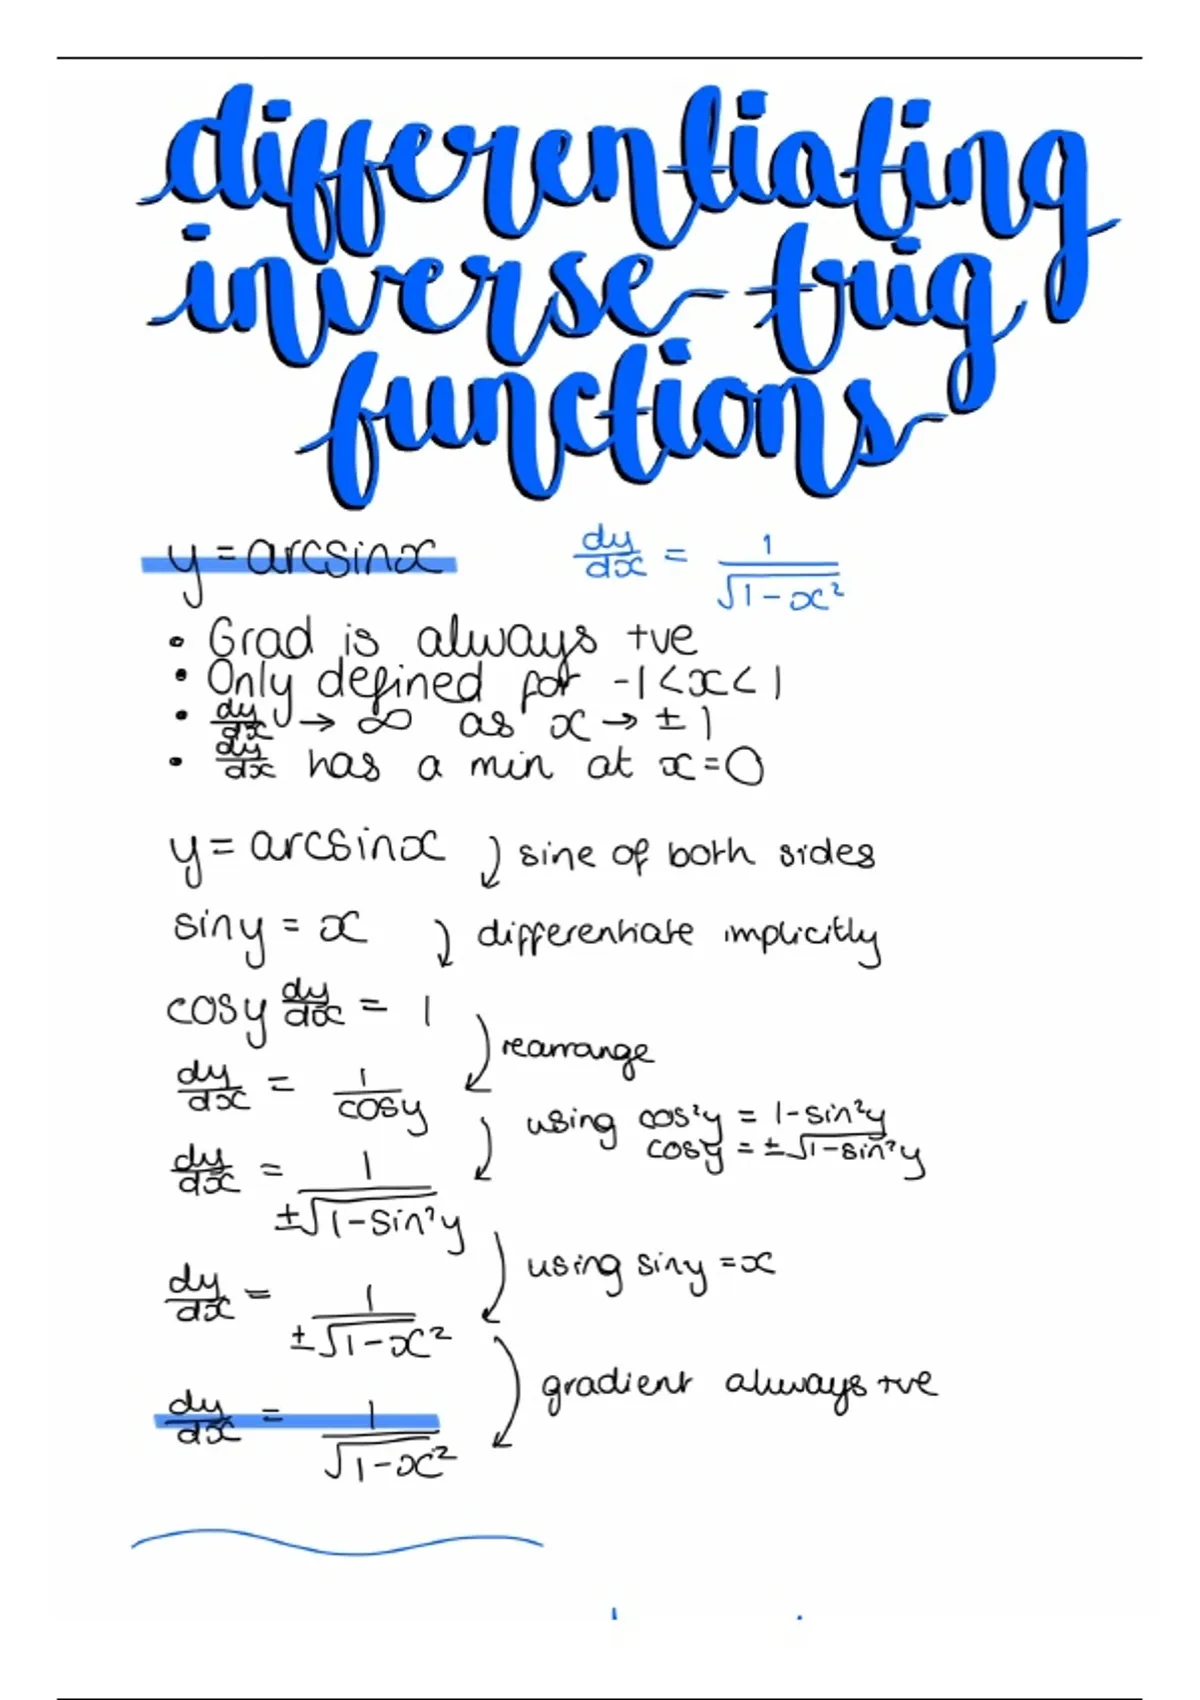 differentiating
inverse trig
functions
y = arcsinx dy/dx = 1/√(1-x²)
• Grad is always +ve
• Only defined for -1<x<1
• dy/dx → ∞ as x → ± 1
• dy/dx has a min at x=0
y = arcsinx sine of both sides
siny = x differentiate implicitly
cosy dy/dx = 1
rearrange
dy/dx = 1/cosy
using cos²y = 1-sin²y
cosy = ±√(1-sin²y)
dy/dx = 1/±√(1-sin²y)
using siny = x
dy/dx = 1/±√(1-x²)
gradient always +ve
dy/dx = 1/√(1-x²)